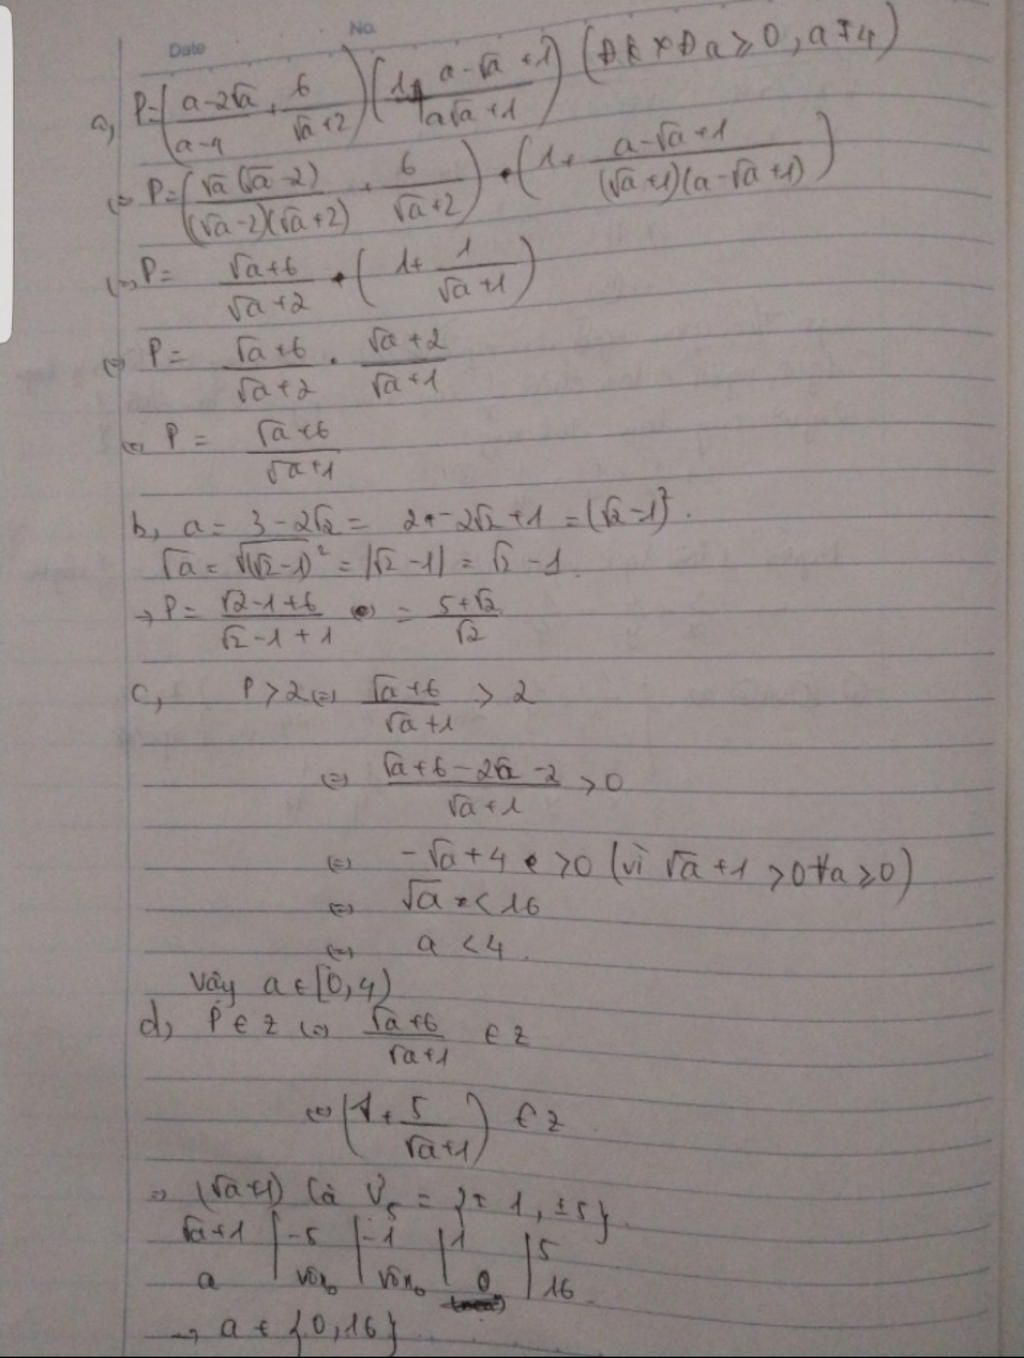 Date No.
a, P=(\frac{a-2√a}{a-4} + \frac{6}{√a+2})(1+\frac{a-√a+1}{a√a+1}) (ĐKXĐ a≥0, a≠4)
(=) P=(\frac{√a(√a-2)}{(√a-2)(√a+2)} + \frac{6}{√a+2}) . (1+\frac{a-√a+1}{(√a+1)(a-√a+1)})
(=) P= \frac{√a+6}{√a+2} . (1+\frac{1}{√a+1})
(=) P= \frac{√a+6}{√a+2} . \frac{√a+2}{√a+1}
(=) P = \frac{√a+6}{√a+1}
b, a = 3-2√2 = 2-2√2+1 = (√2-1)².
√a = √(√2-1)² = |√2-1| = √2-1.
→ P= \frac{√2-1+6}{√2-1+1} = \frac{5+√2}{√2}
c, P>2 (=) \frac{√a+6}{√a+1} > 2
(=) \frac{√a+6-2√a-2}{√a+1} >0
(=) -√a+4 >0 (vì √a+1 >0 ∀a≥0)
(=) √a <16
(=) a <4.
Vậy a∈[0,4)
d, P∈Z (=) \frac{√a+6}{√a+1} ∈Z
(=) (1+\frac{5}{√a+1}) ∈Z
=> (√a+1) là Ư₅ = {±1, ±5}.
√a+1 | -5 | -1 | 1 | 5
a | vôn₀ | vôn₀ | 0 | 16
→ a∈{0,16}